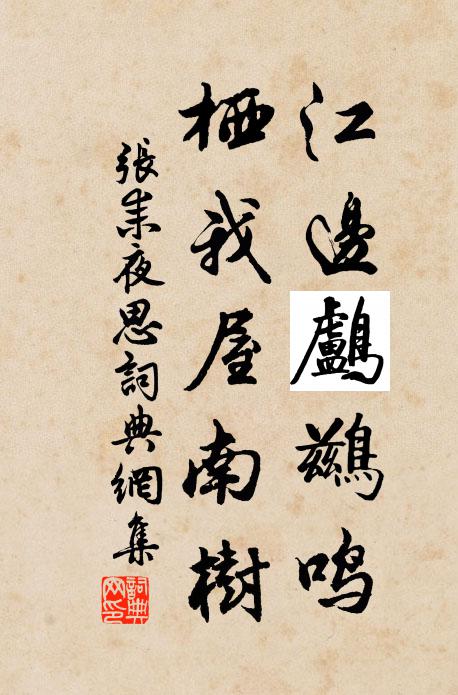 江邊鸕鷀鳴
栖我屋南樹
張耒夜思詞典網集
詞典网印